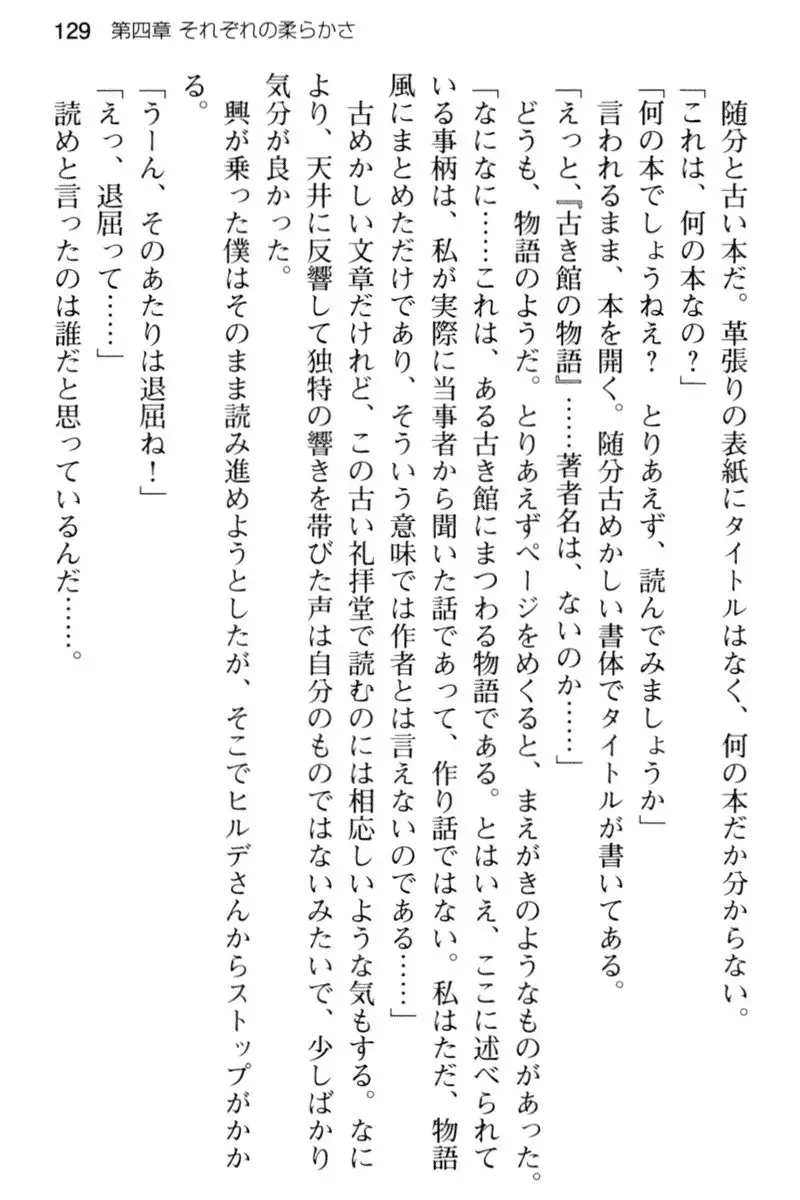 129 第四章 それぞれの柔らかさ
随分と古い本だ。革張りの表紙にタイトルはなく、何の本だか分からない。
「これは、何の本なの？」
「何の本でしょうねえ？　とりあえず、読んでみましょうか」
言われるまま、本を開く。随分古めかしい書体でタイトルが書いてある。
「えっと、『古き館の物語』……著者名は、ないのか……」
どうも、物語のようだ。とりあえずページをめくると、まえがきのようなものがあった。
「なになに……これは、ある古き館にまつわる物語である。とはいえ、ここに述べられて
いる事柄は、私が実際に当事者から聞いた話であって、作り話ではない。私はただ、物語
風にまとめただけであり、そういう意味では作者とは言えないのである……」
古めかしい文章だけれど、この古い礼拝堂で読むのには相応しいような気もする。なに
より、天井に反響して独特の響きを帯びた声は自分のものではないみたいで、少しばかり
気分が良かった。
興が乗った僕はそのまま読み進めようとしたが、そこでヒルデさんからストップがかか
る。
「うーん、そのあたりは退屈ね！」
「えっ、退屈って……」
読めと言ったのは誰だと思っているんだ……。